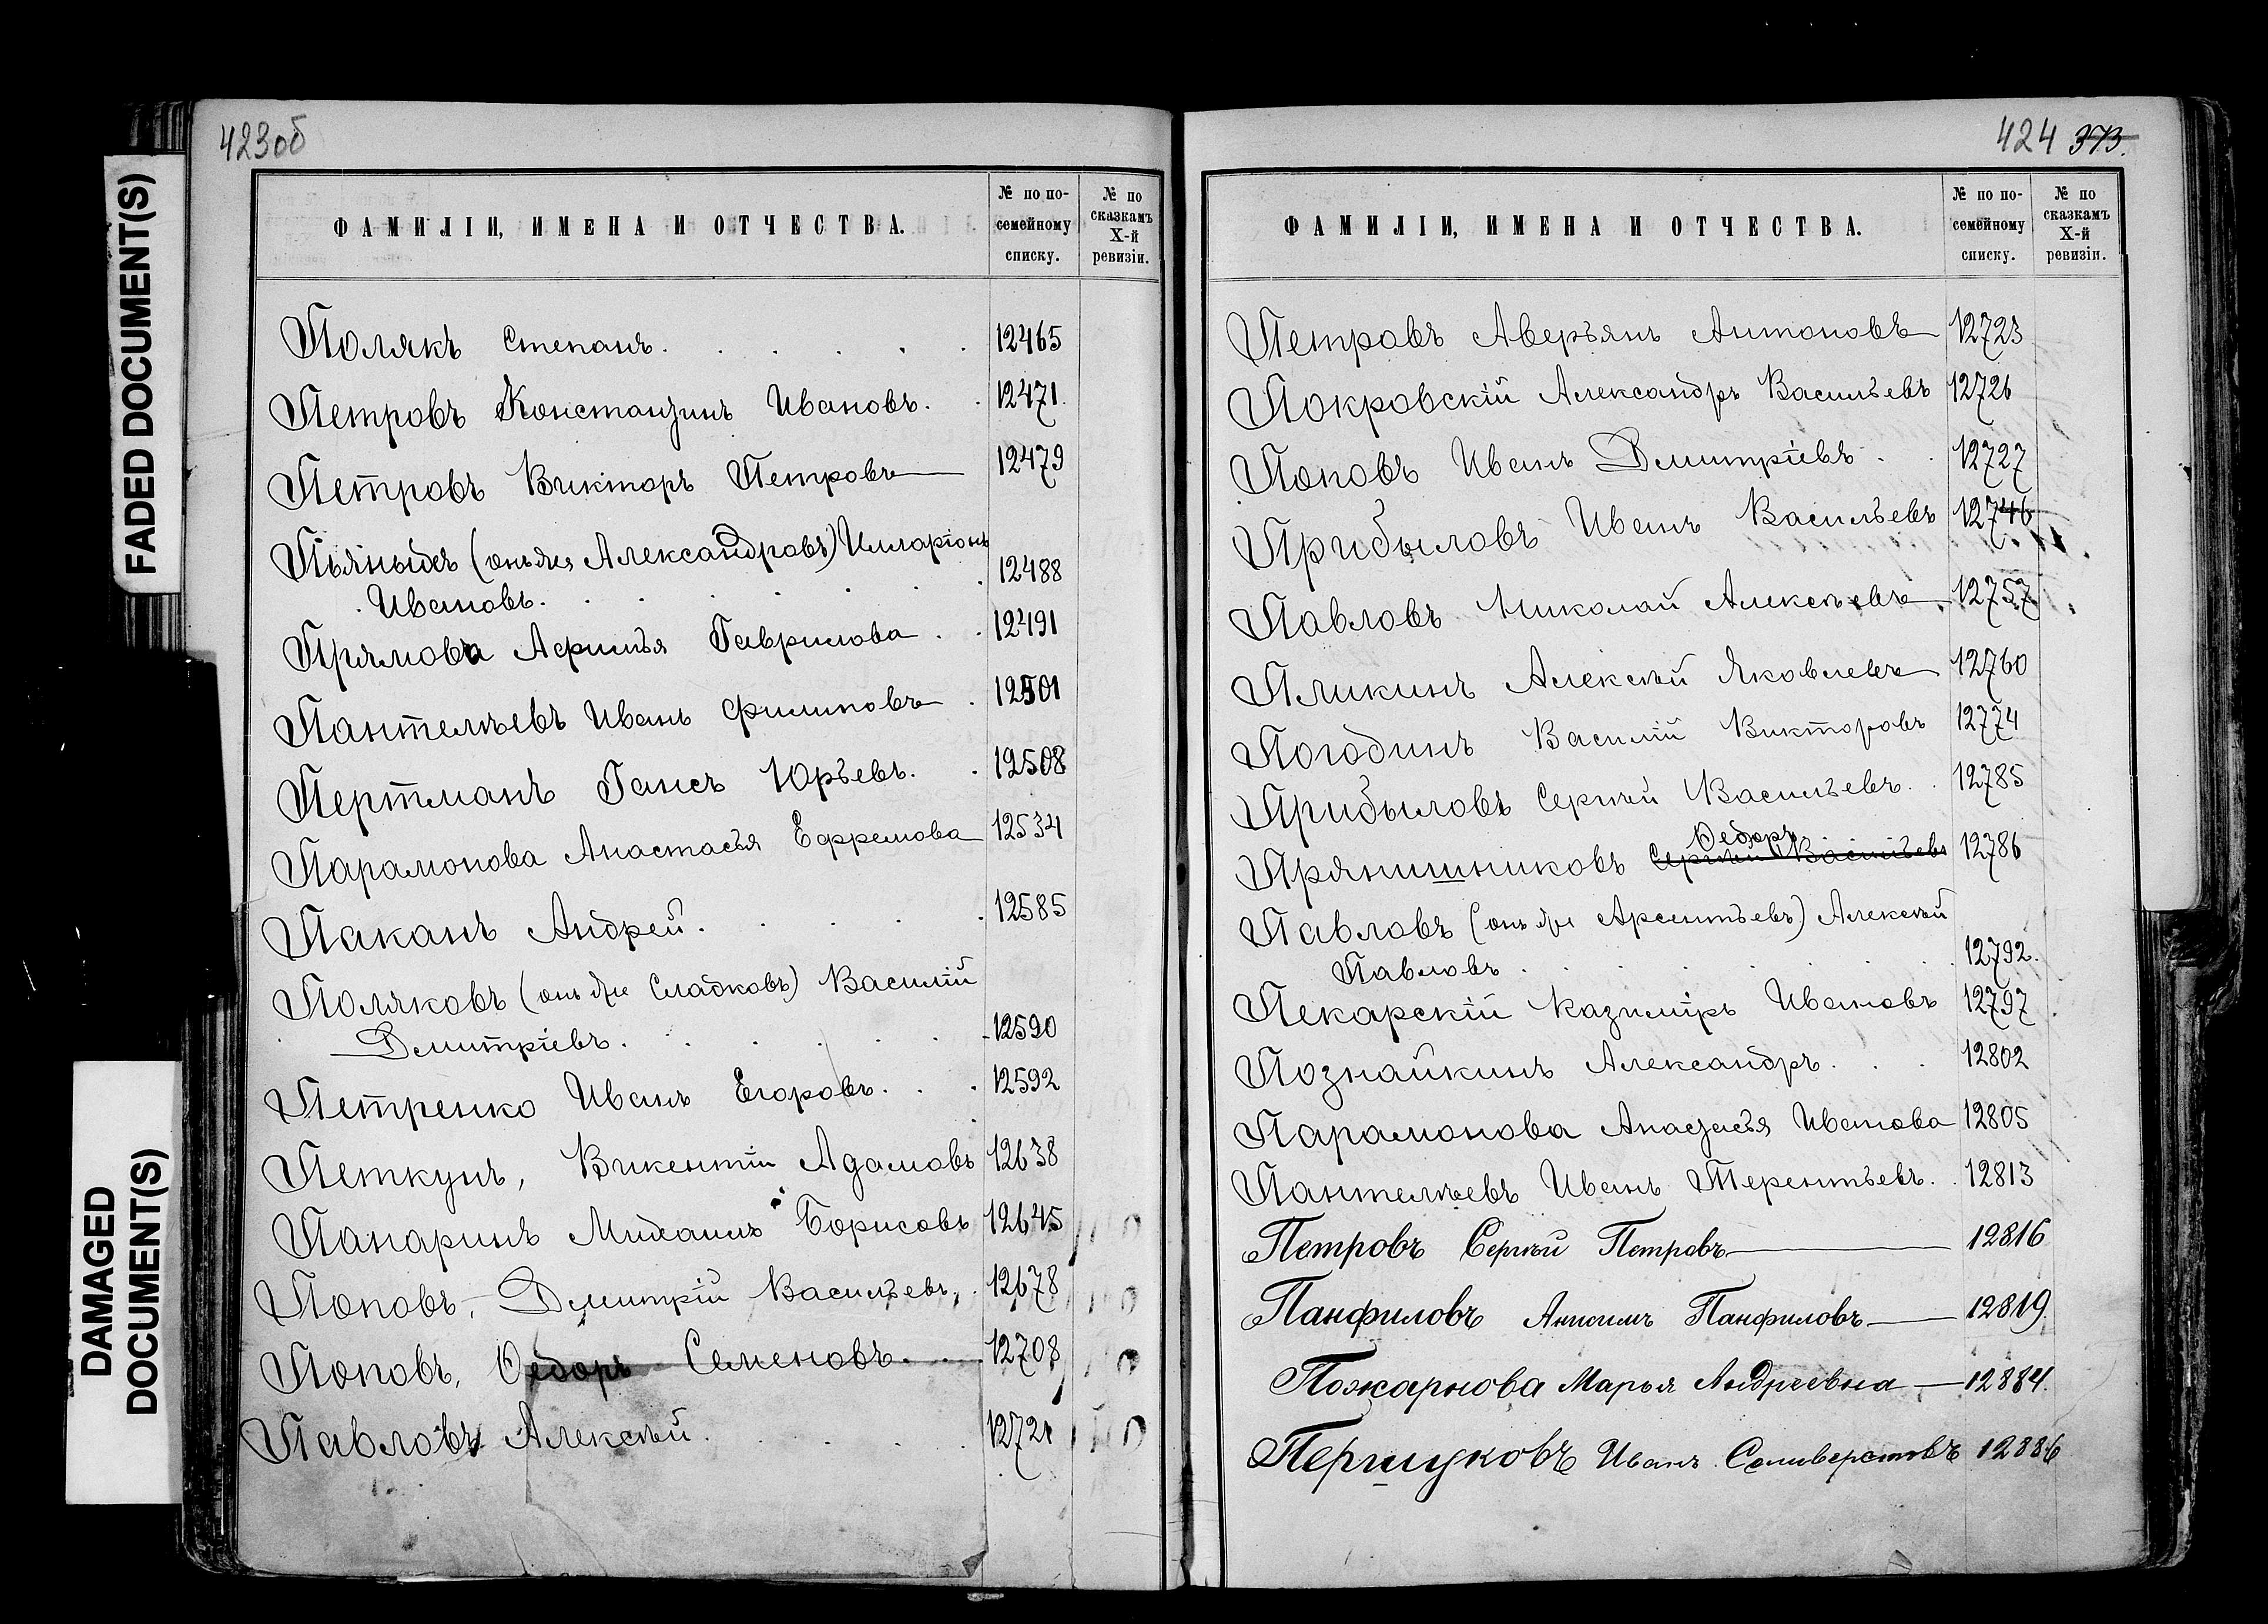 423об
ФАМИЛІИ, ИМЕНА И ОТЧЕСТВА.
№ по по-
семейному
списку.
№ по
сказкамъ
X-й
ревизіи.
Полякъ Степанъ. 12465
Петровъ Константинъ Ивановъ. 12471.
Петровъ Викторъ Петровъ 12479
Пьяныхъ (онъ же Александровъ) Илларіонъ
Ивановъ. 12488
Прямова Афимья Гаврилова 12491
Пантелѣевъ Иванъ Филиповъ 12501
Пертманъ Гансъ Юрьевъ. 12508
Парамонова Анастасья Ефремова 12534
Паканъ Андрей. 12585
Поляковъ (онъ же Сладковъ) Василій
Дмитріевъ. 12590
Петренко Иванъ Егоровъ. 12592
Петкунъ, Викентій Адамовъ 12638
Панаринъ Михаилъ Борисовъ 12645
Поповъ, Дмитрій Васильевъ, 12678
Поповъ, Ѳедоръ Семеновъ. 12708
Павловъ Алексѣй. 12721
424 373.
ФАМИЛІИ, ИМЕНА И ОТЧЕСТВА.
№ по по-
семейному
списку.
№ по
сказкамъ
X-й
ревизіи.
Петровъ Аверьянъ Антоновъ 12723
Покровскій Александръ Васильевъ 12726
Поповъ Иванъ Дмитріевъ. 12727
Прибыловъ Иванъ Васильевъ 12746
Павловъ Николай Алексѣевъ 12757
Пликинъ Алексѣй Яковлевъ 12760
Погодинъ Василій Викторовъ 12774
Прибыловъ Сергѣй Васильевъ. 12785
Ѳедоръ
Прянишниковъ Сергѣй Васильевъ 12786
Павловъ (онъ же Арсентьевъ) Алексѣй
Павловъ 12792.
Пекарскій Казиміръ Ивановъ 12797
Познайкинъ Александръ. 12802
Парамонова Анастасья Иванова 12805
Пантелѣевъ Иванъ Терентьевъ. 12813
Петровъ Сергѣй Петровъ 12816
Панфиловъ Анисимъ Панфиловъ 12819.
Пожарнова Марья Андреевна — 12884.
Першуковъ Иванъ Селиверстовъ 12886
FADED DOCUMENT(S)
DAMAGED
DOCUMENT(S)